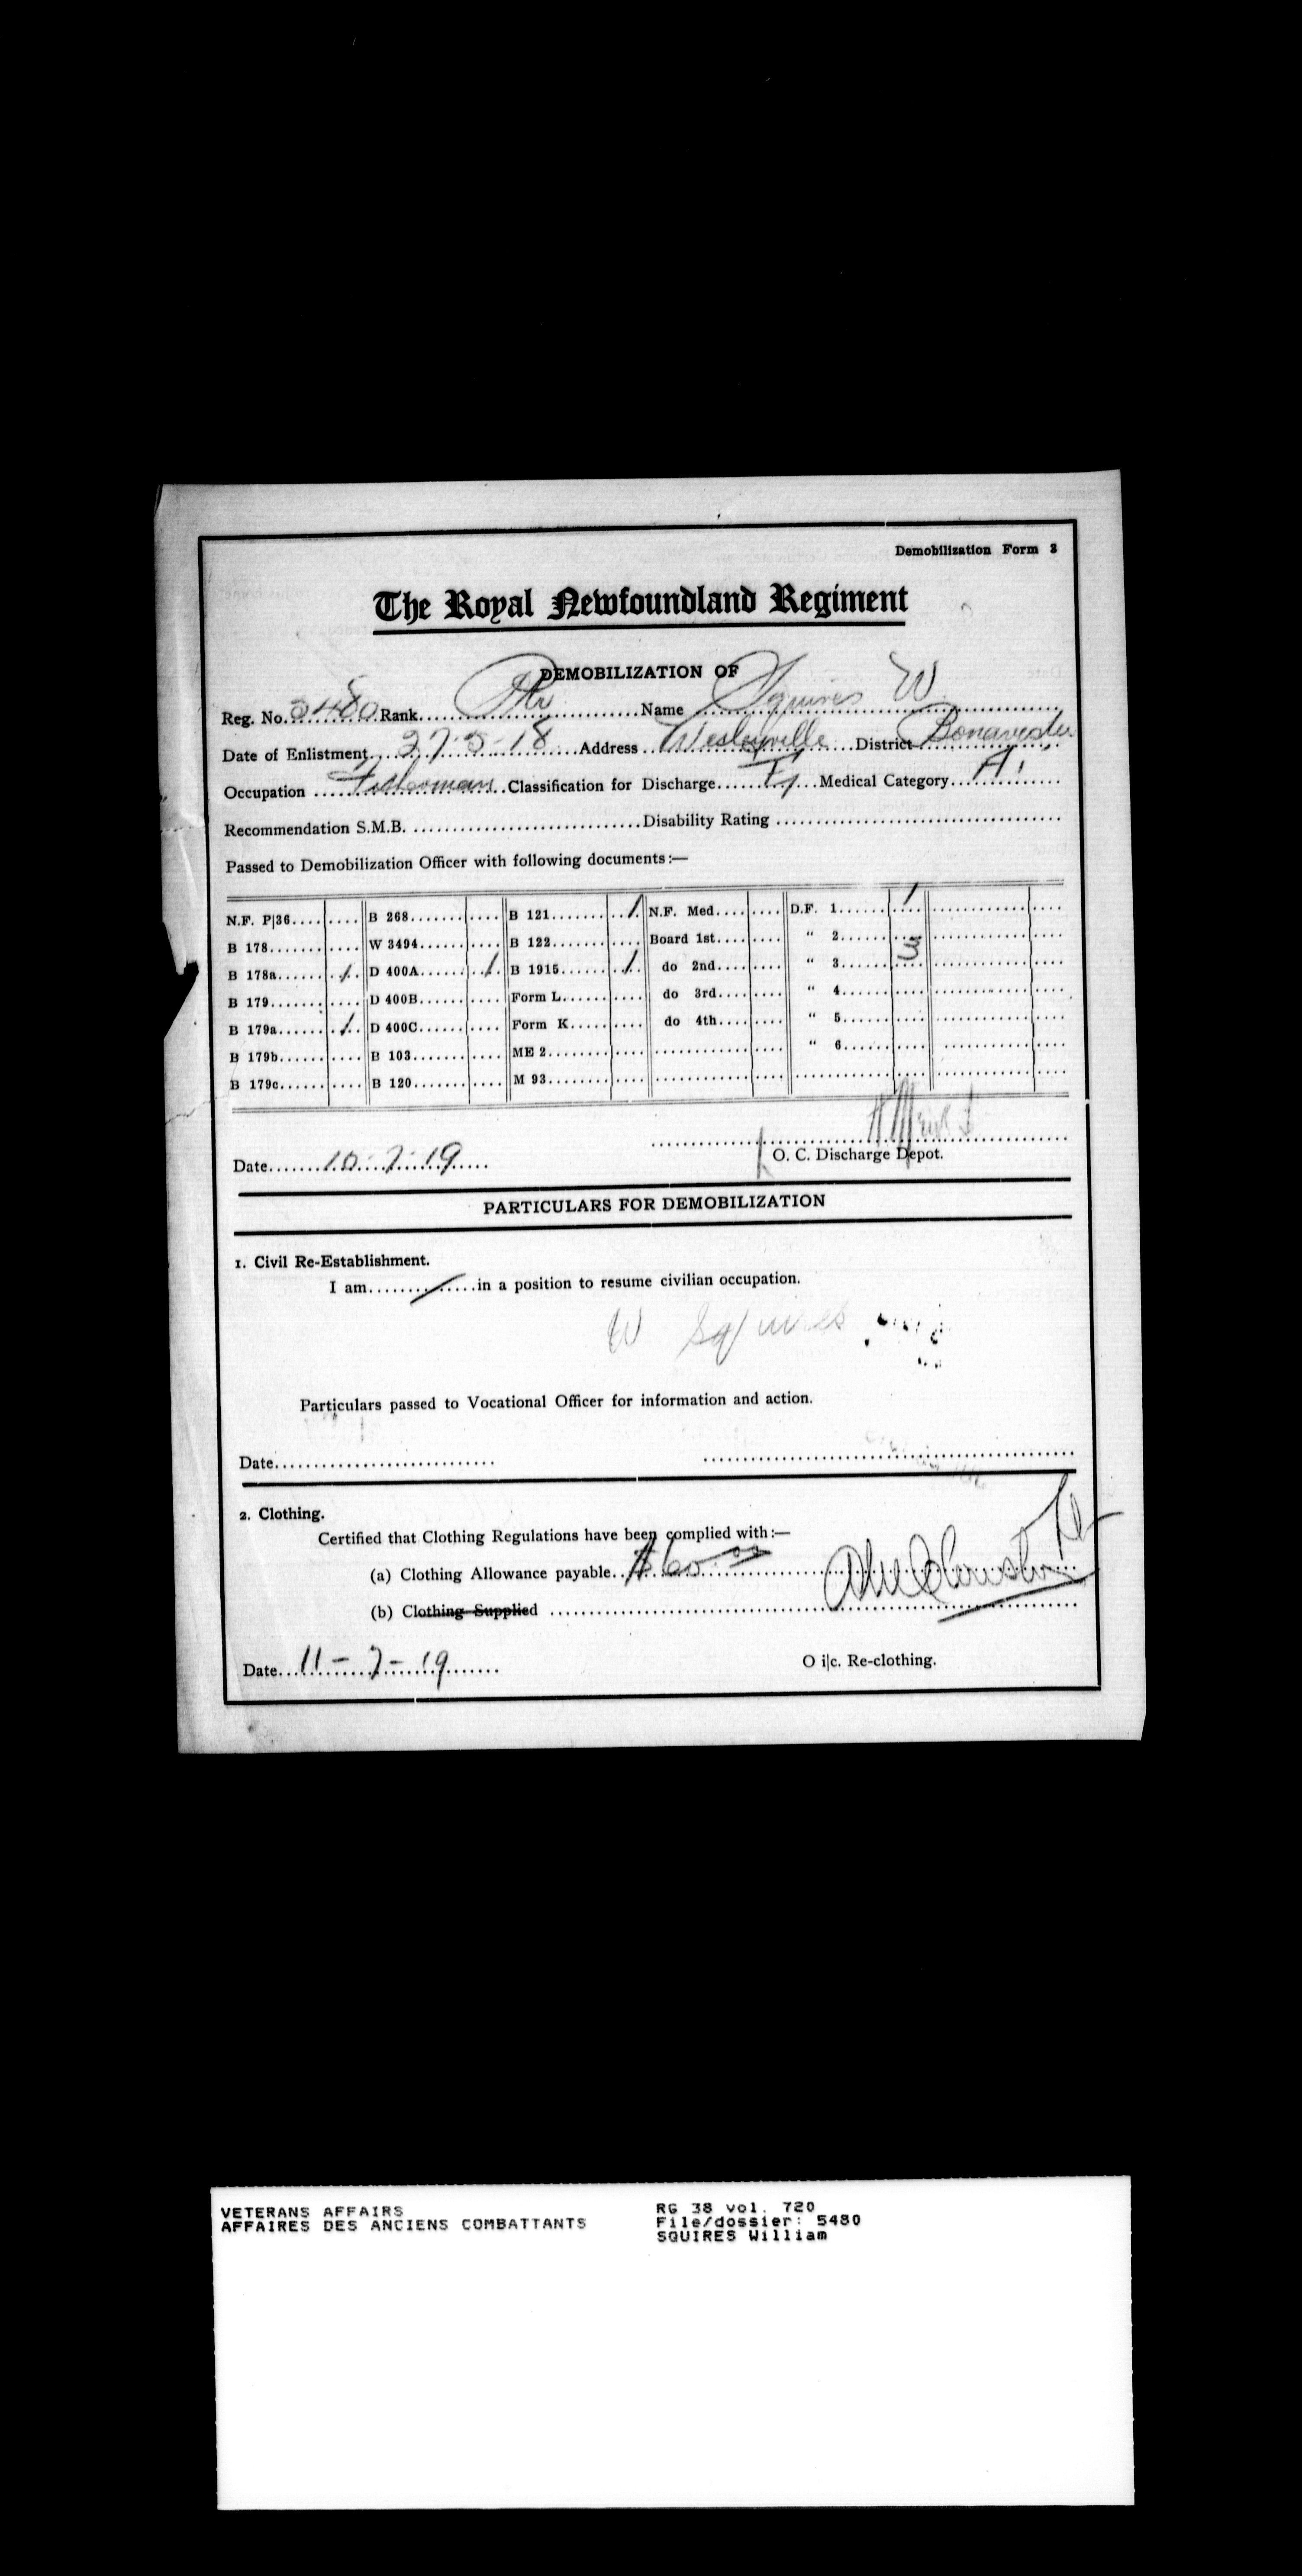 Demobilization Form 3
The Royal Newfoundland Regiment
DEMOBILIZATION OF
Reg. No. 5480 Rank Pte Name Squires W
Date of Enlistment 27-5-18 Address Wesleyville District Bonavista
Occupation Fisherman Classification for Discharge Medical Category A1
Recommendation S.M.B. Disability Rating
Passed to Demobilization Officer with following documents:—
N.F. P|36 B 268 B 121 / N.F. Med. D.F. 1 /
B 178 W 3494 B 122 Board 1st " 2
B 178a / D 400A / B 1915 / do 2nd " 3 3
B 179 D 400B Form L do 3rd " 4
B 179a / D 400C Form K do 4th " 5
B 179b B 103 ME 2 " 6
B 179c B 120 M 93
Date 10-7-19 O. C. Discharge Depot.
PARTICULARS FOR DEMOBILIZATION
1. Civil Re-Establishment.
I am in a position to resume civilian occupation.
W Squires
Particulars passed to Vocational Officer for information and action.
Date
2. Clothing.
Certified that Clothing Regulations have been complied with:—
(a) Clothing Allowance payable $60.00
(b) Clothing Supplied
Date 11-7-19 O i|c. Re-clothing.
VETERANS AFFAIRS RG 38 vol. 720
AFFAIRES DES ANCIENS COMBATTANTS File/dossier: 5480
SQUIRES William